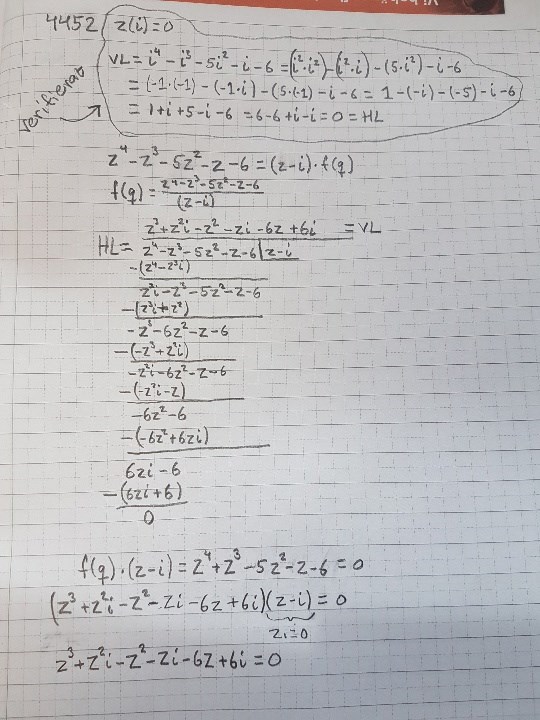 4452 z(i)=0
VL = i⁴ - i³ - 5i² - i - 6 = (i²·i²) - (i²·i) - (5·i²) - i - 6
= (-1·(-1) - (-1·i) - (5·(-1) - i - 6 = 1 - (-i) - (-5) - i - 6
verifierat
= 1 + i + 5 - i - 6 = 6 - 6 + i - i = 0 = HL
z⁴ - z³ - 5z² - z - 6 = (z-i)·f(q)
f(q) = z⁴-z³-5z²-z-6 / (z-i)
z³ + z²i - z² - zi - 6z + 6i = VL
HL = z⁴ - z³ - 5z² - z - 6 | z-i
-(z⁴-z³i)
z³i - z³ - 5z² - z - 6
-(z³i + z²)
-z³ - 6z² - z - 6
-(-z³ + z²i)
-z²i - 6z² - z - 6
-(-z²i - z)
-6z² - 6
-(-6z² + 6zi)
6zi - 6
-(6zi + 6)
0
f(q)·(z-i) = z⁴ + z³ - 5z² - z - 6 = 0
(z³ + z²i - z² - zi - 6z + 6i)(z-i) = 0
z₁=0
z³ + z²i - z² - zi - 6z + 6i = 0